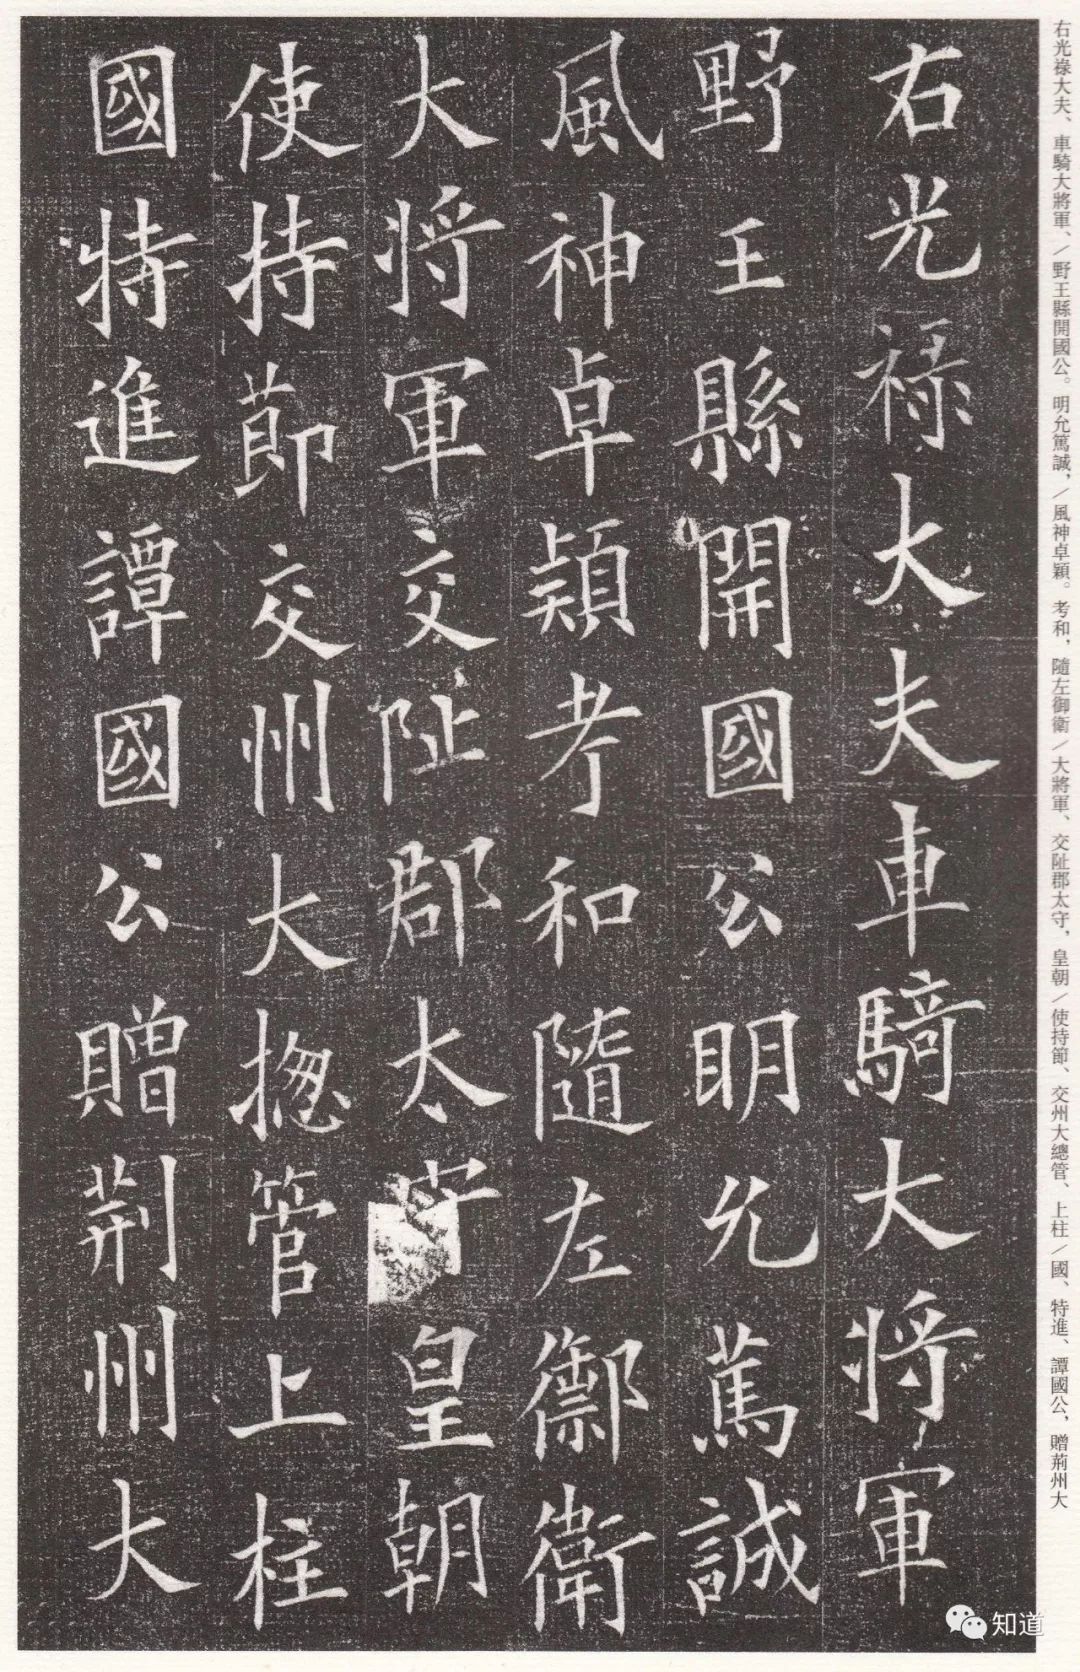 右光祿大夫車騎大將軍
野王縣開國公明允篤誠
風神卓穎考和隨左御衛
大將軍交阯郡太守皇朝
使持節交州大揔管上柱
國特進譚國公贈荊州大
右光祿大夫、車騎大將軍、／野王縣開國公。明允篤誠，／風神卓穎。考和，隨左御衛／大將軍、交阯郡太守，皇朝／使持節、交州大總管、上柱／國、特進、譚國公，贈荊州大
知道